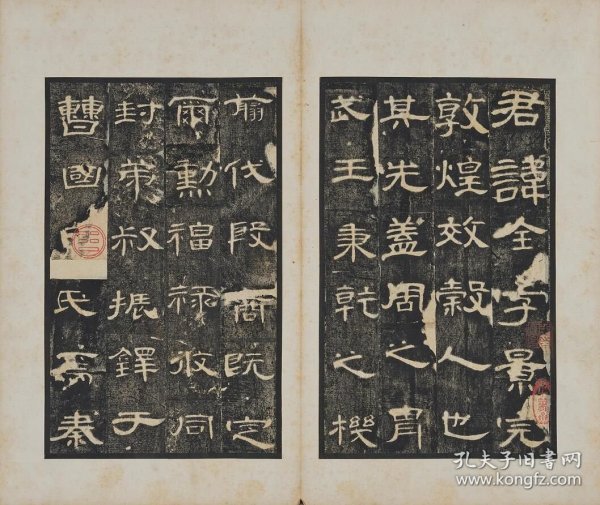 君諱全字景完
敦煌效穀人也
其先蓋周之胄
武王秉乾之機
翦伐殷商既定
爾勳福祿攸同
封弟叔振鐸于
曹國 氏焉秦
孔夫子旧书网
www.kongfz.com